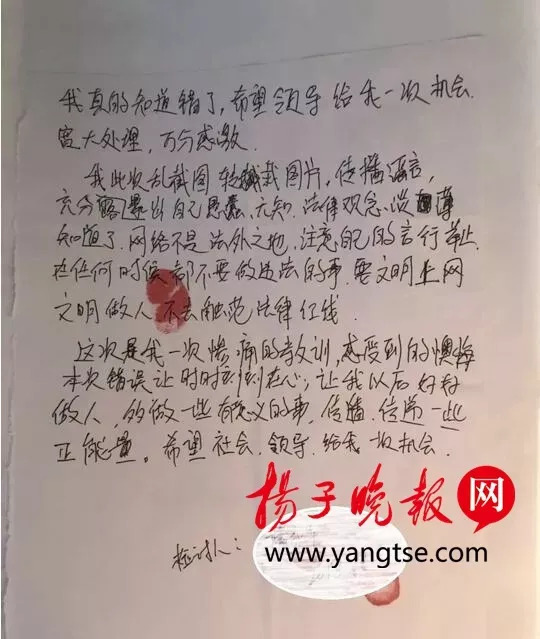 我真的知道错了，希望领导给我一次机会.
宽大处理，万分感激.
我此次乱截图 转载图片，传播谣言，
充分暴露出自己愚蠢、无知、法律观念淡薄
知道了.网络不是法外之地，注意自己的言行举止.
在任何时候都不要做违法的事.要文明上网
文明做人 不去触范法律红线.
这次是我一次惨痛的教训，感受到的懊悔
本次错误让时时刻刻在心；让我以后好好
做人，的做一些有意义的事，传播.传递一些
正能量。希望社会.领导.给我一次机会.
扬子晚报网
www.yangtse.com
检讨人：